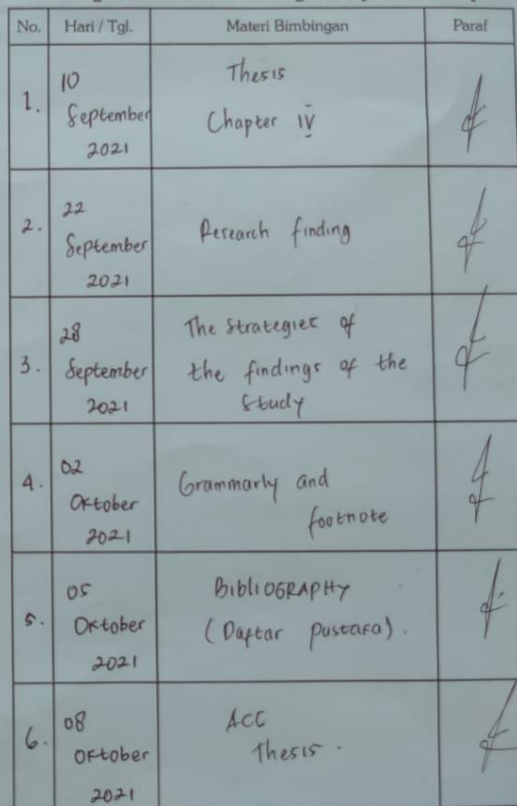 No. Hari / Tgl. Materi Bimbingan Paraf
1. 10 September 2021 Thesis
Chapter IV
2. 22 September 2021 Research finding
3. 28 September 2021 The Strategies of
the findings of the
Study
4. 02 Oktober 2021 Grammarly and
footnote
5. 05 Oktober 2021 BIBLIOGRAPHY
(Daftar Pustaka).
6. 08 Oktober 2021 ACC
Thesis.